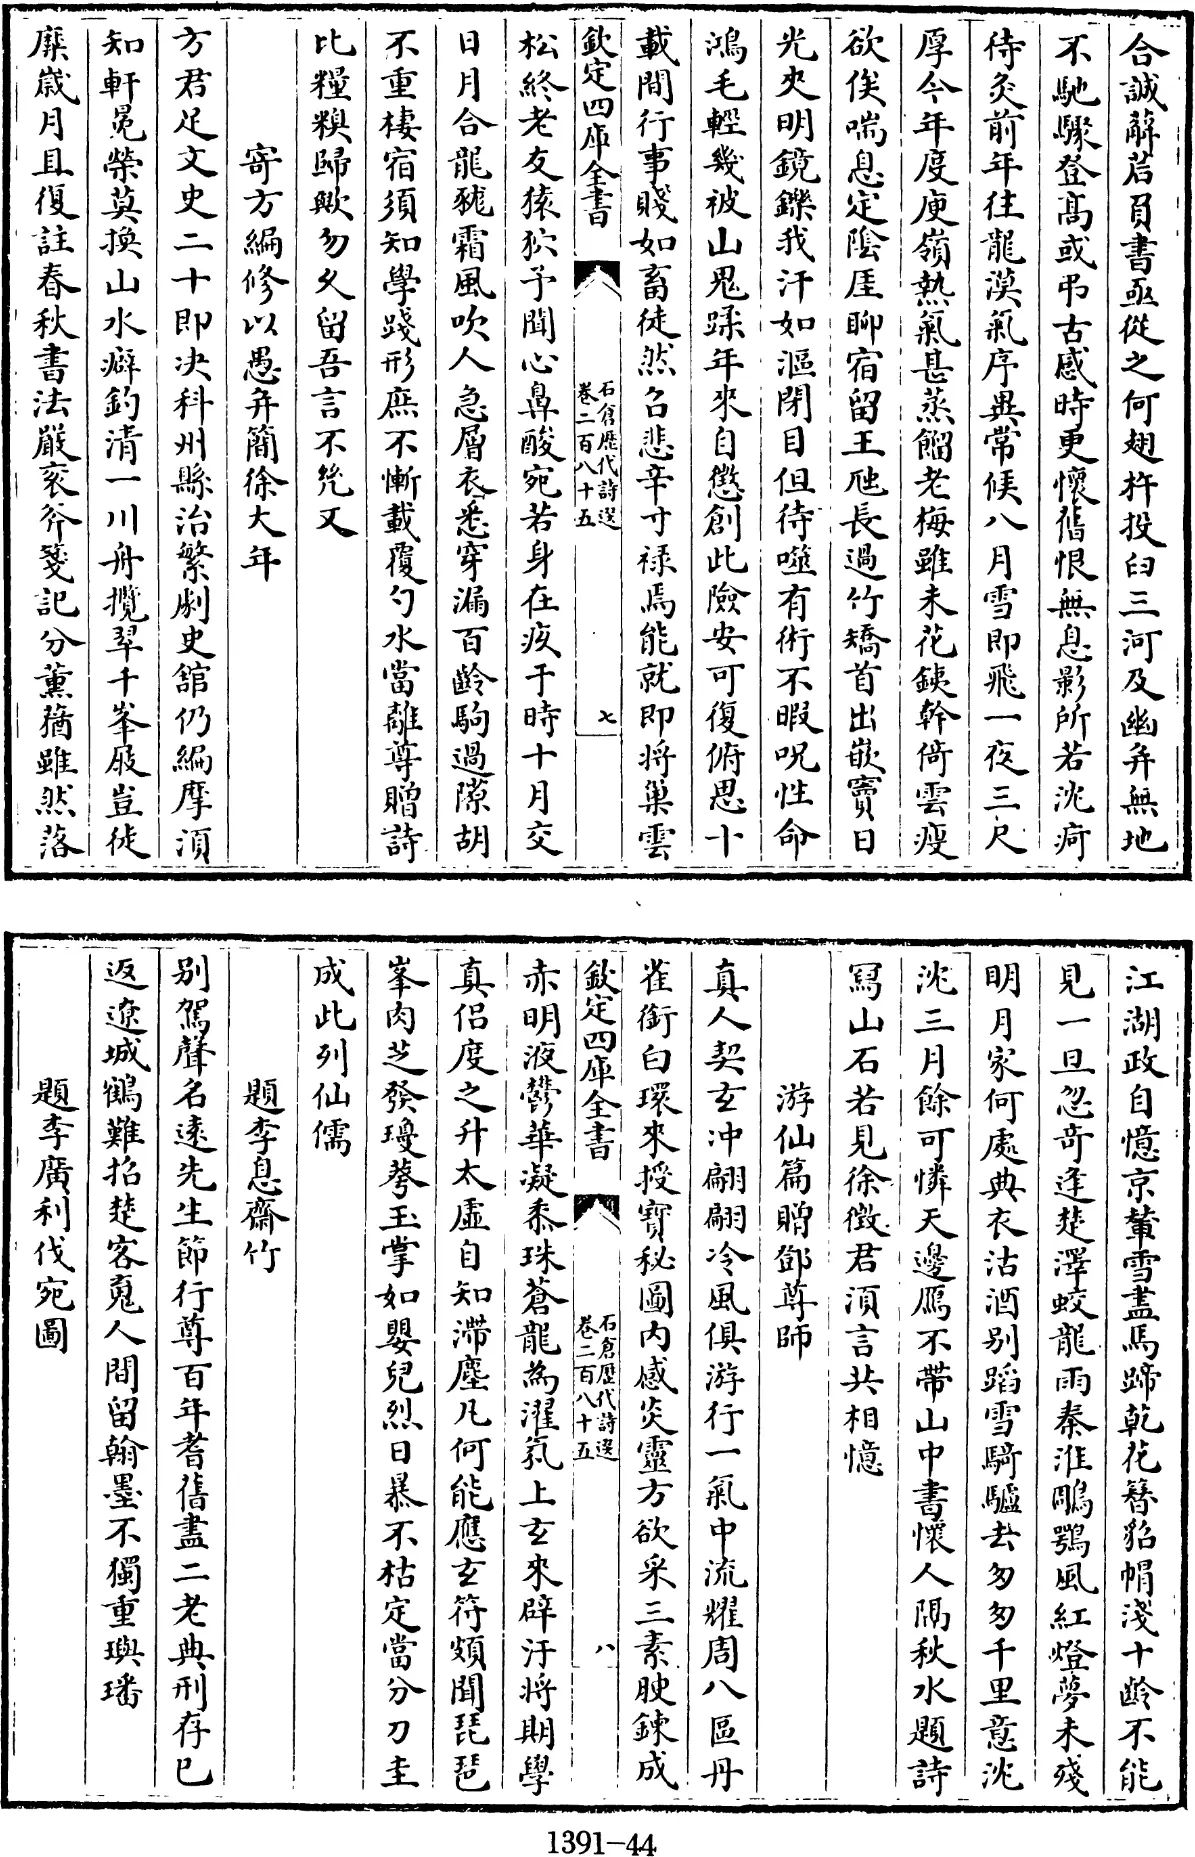 合誠辭若員書亟從之何翅杵投臼三河及幽并無地
不馳驟登髙或弔古感時更懷舊恨無息影所若沈疴
待灸前年往龍漠氣序異常候八月雪即飛一夜三尺
厚今年度庾嶺熱氣甚蒸餾老梅雖未花鐵幹倚雲瘦
欲俟喘息定陰厓聊宿留王虺長過竹矯首出嵌竇日
光夾明鏡鑠我汗如漚閉目但待噬有術不暇呪性命
鴻毛輕幾被山鬼蹂年來自懲創此險安可復俯思十
載間行事賤如畜徒然名悲辛寸禄焉能就即將巢雲
欽定四庫全書
石倉歴代詩選
卷二百八十五
七
松終老友猿狖予聞心鼻酸宛若身在疚于時十月交
日月合龍㺔霜風吹人急層衣悉穿漏百齡駒過隙胡
不重棲宿須知學踐形庶不慚載覆勺水當離尊贈詩
比糧糗歸歟勿久留吾言不兊又
寄方編修以愚并簡徐大年
方君足文史二十即决科州縣治繁劇史舘仍編摩湏
知軒冕榮莫換山水癖釣清一川舟攬翠千峯屐豈徒
糜歳月且復註春秋書法嚴衮斧箋記分薫蕕雖然落
江湖政自憶京輦雪盡馬蹄乾花簪貂帽淺十齡不能
見一旦忽竒逢楚澤蛟龍雨秦淮鵰鶚風紅燈夢未殘
明月家何處典衣沽酒别蹈雪騎驢去匆匆千里意沈
沈三月餘可憐天邊鴈不帶山中書懷人隔秋水題詩
冩山石若見徐徴君湏言共相憶
游仙篇贈鄧尊師
真人契玄冲翩翩冷風俱游行一氣中流耀周八區丹
雀銜白環來授寳秘圖内感炎靈方欲采三素腴鍊成
欽定四庫全書
石倉歴代詩選
卷二百八十五
八
赤明液欝華凝黍珠蒼龍為濯氛上玄來辟汙將期學
真侣度之升太虚自知滯塵凡何能應玄符頗聞琵琶
峯肉芝發瓊蕚玉掌如嬰兒烈日暴不枯定當分刀圭
成此列仙儒
題李息齋竹
别駕聲名逺先生節行尊百年耆舊盡二老典刑存已
返遼城鶴難招楚客䰟人間留翰墨不獨重璵璠
題李廣利伐宛圖
1391-44